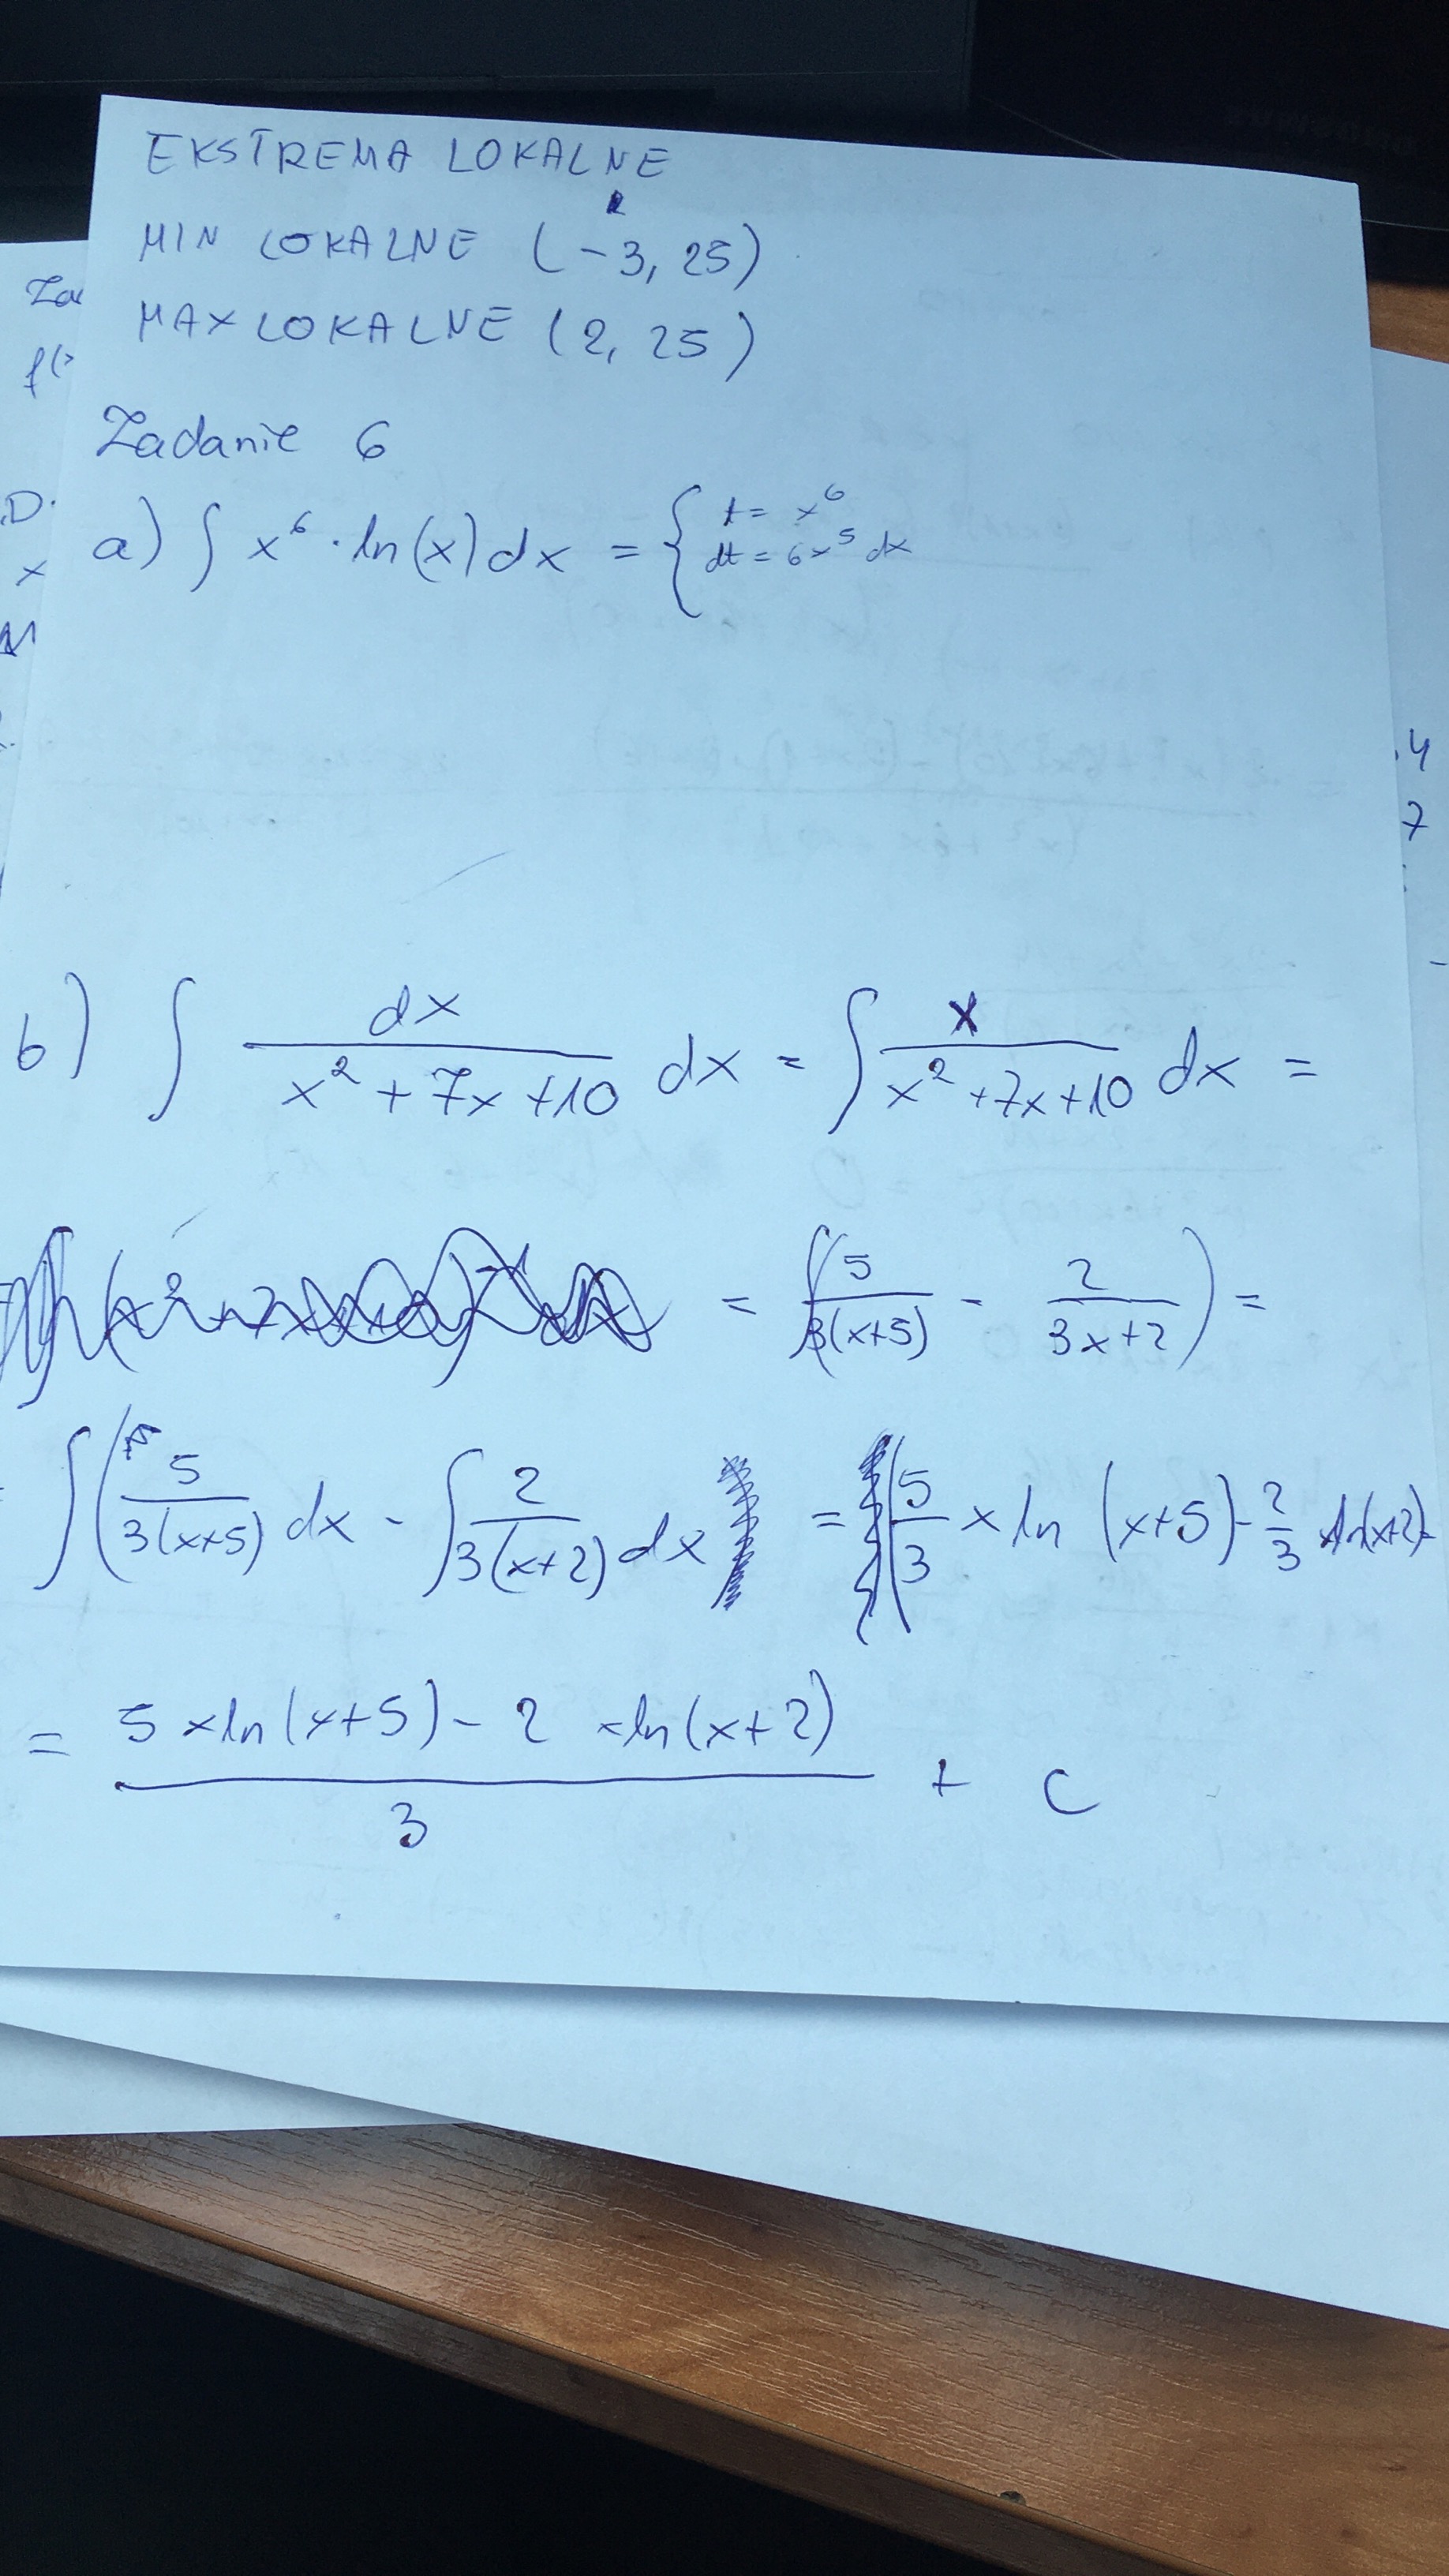 EKSTREMA LOKALNE
MIN LOKALNE (-3, 25)
MAX LOKALNE (2, 25)
Zadanie 6
a) ∫ x⁶ · ln(x) dx = { t = x⁶
dt = 6x⁵ dx
b) ∫ dx / (x² + 7x + 10) dx = ∫ x / (x² + 7x + 10) dx =
= (5 / 3(x+5) - 2 / 3x+2) =
∫ (5 / 3(x+5) dx - ∫ 2 / 3(x+2) dx = (5/3 × ln (x+5) - 2/3 × ln(x+2) =
= (5 × ln(x+5) - 2 × ln(x+2)) / 3 + C